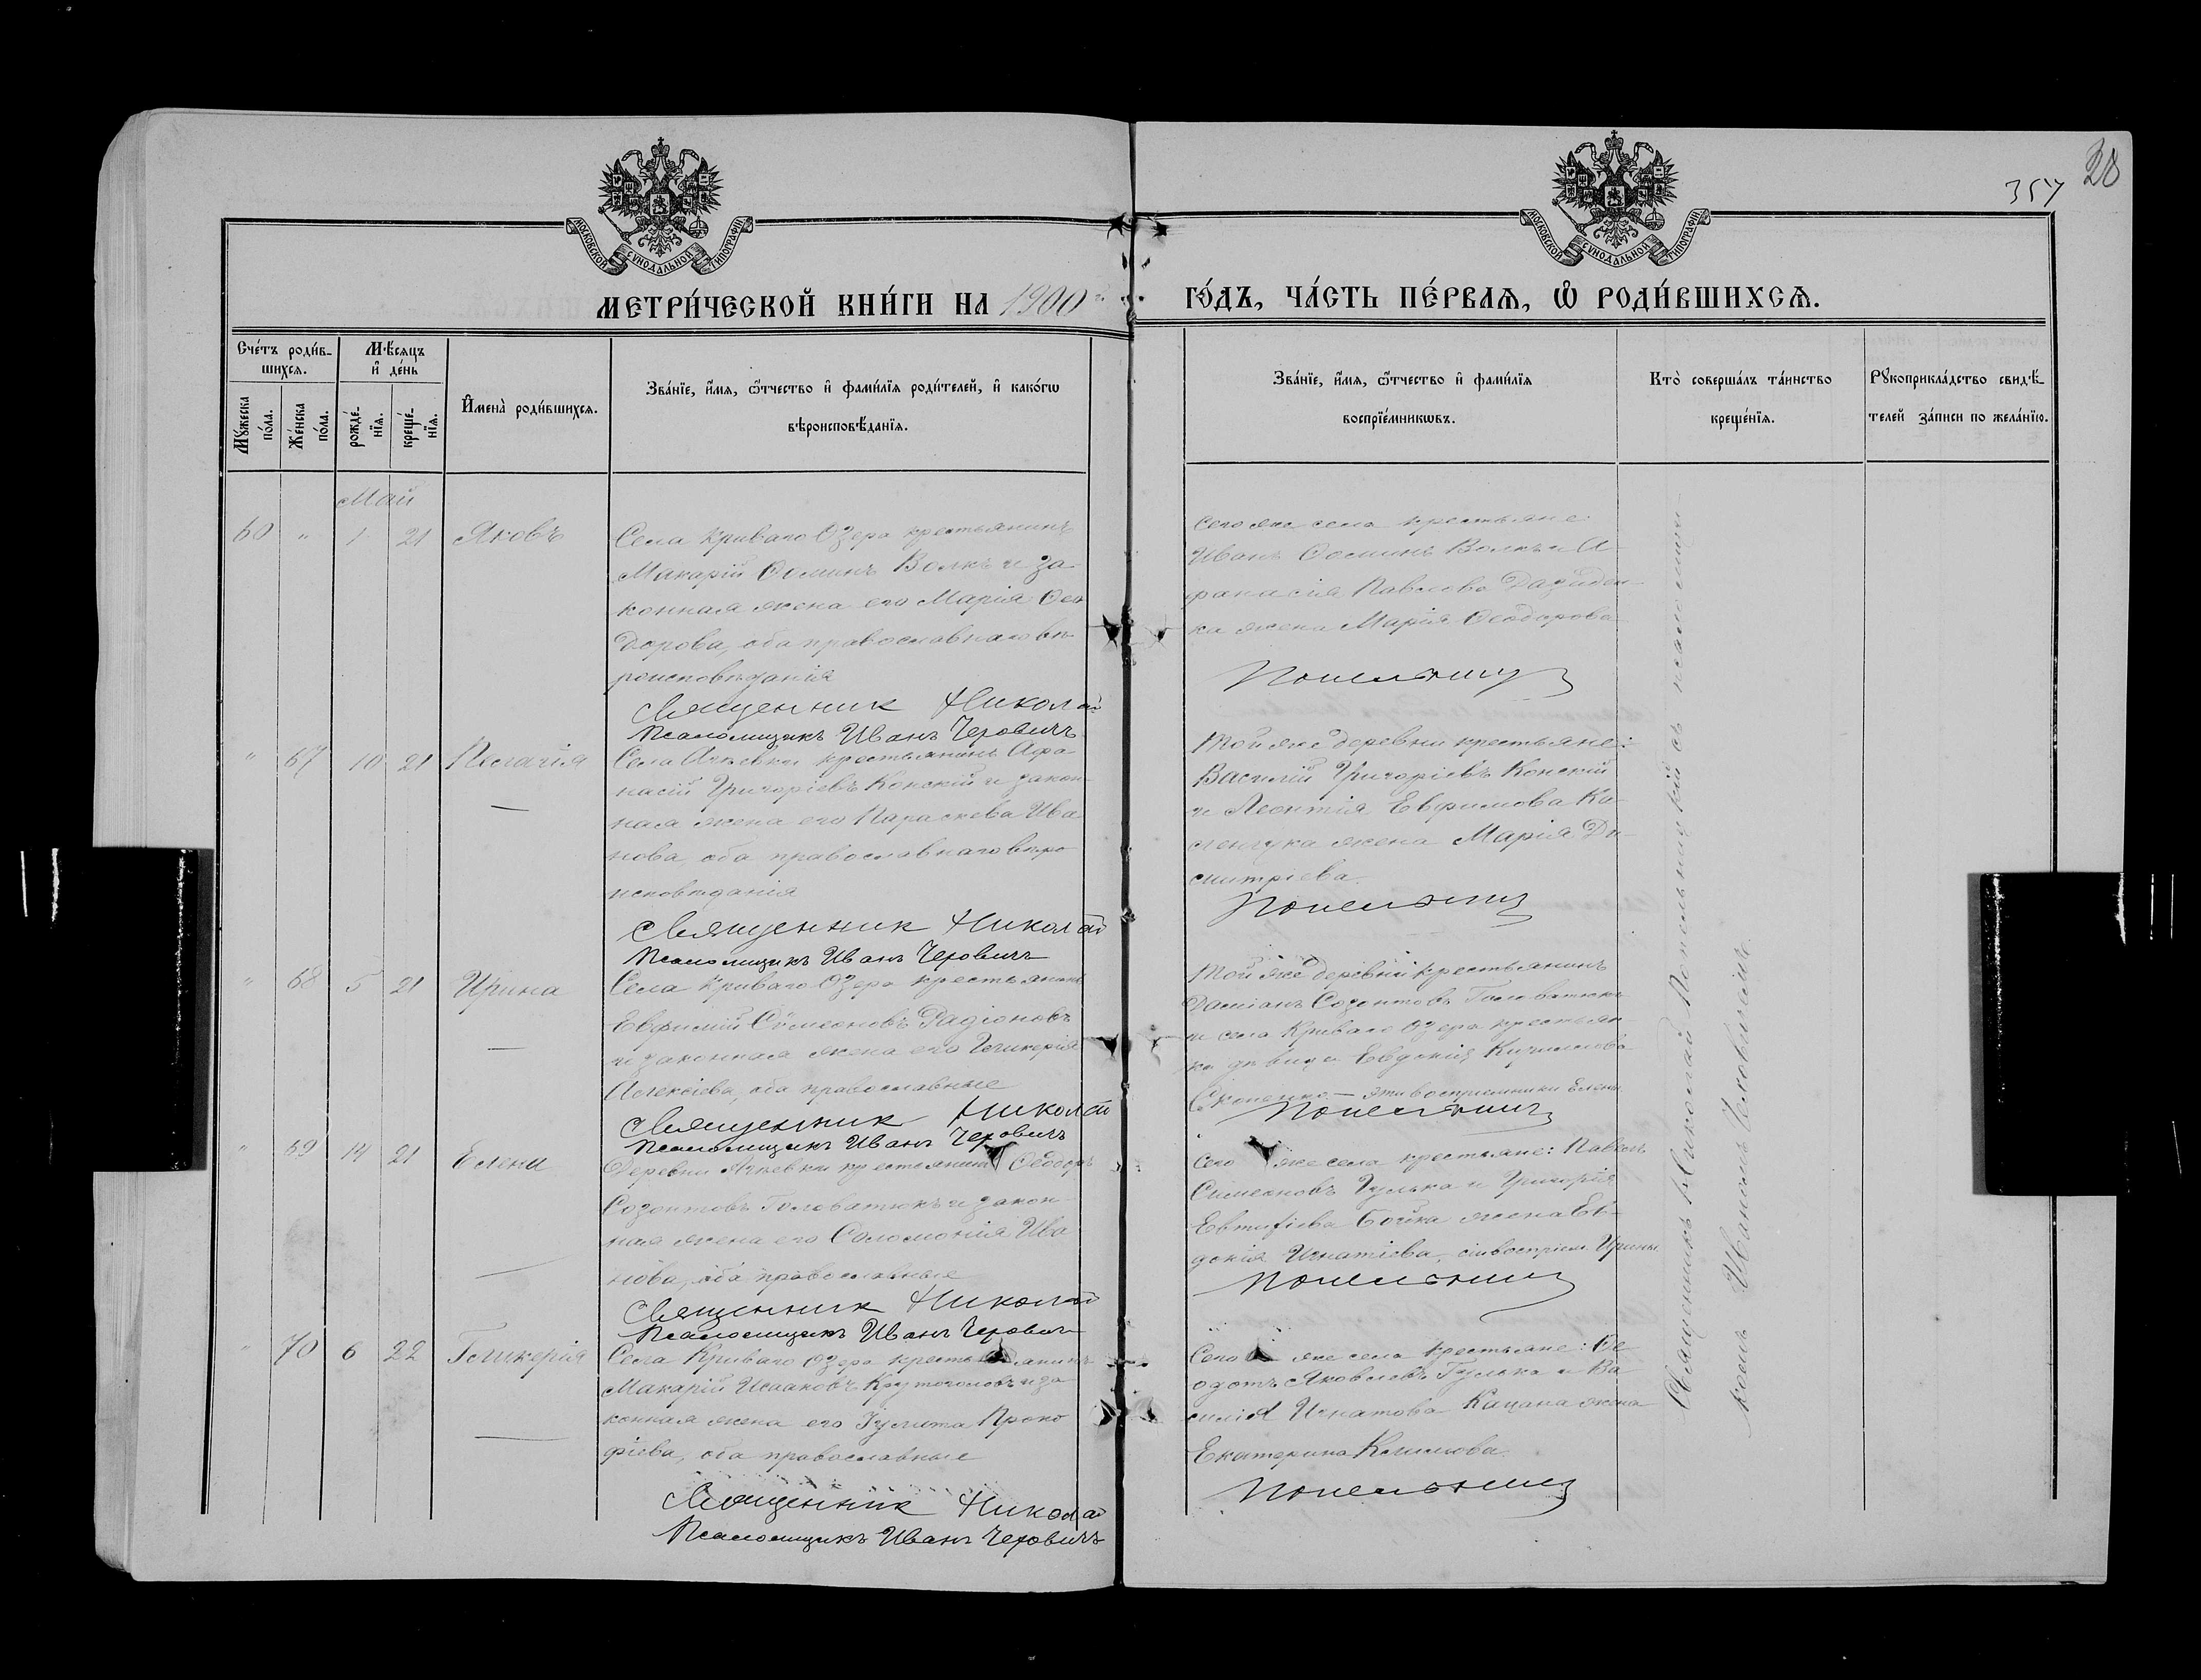 28
357
МОСКОВСКОЙ СѴНОДАЛЬНОЙ ТИПОГРАФІИ
МОСКОВСКОЙ СѴНОДАЛЬНОЙ ТИПОГРАФІИ
МЕТРИ́ЧЕСКОЙ КНИ́ГИ НА 1900
ГО́ДЪ, ЧА́СТЬ ПЕ́РВАѦ, Ѡ҆ РОДИ́ВШИХСѦ.
Сче́тъ роди́в-
шихсѧ.
Мꙋ́жеска по́ла.
Же́нска по́ла.
Мѣ́сѧцъ
и҆ де́нь
рожде́-нїѧ.
креще́-нїѧ.
И҆мена̀ роди́вшихсѧ.
Зва́нїе, и҆́мѧ, ѻ҆́тчество и҆ фами́лїѧ роди́телей, и҆ како́гѡ
вѣроисповѣ́данїѧ.
Зва́нїе, и҆́мѧ, ѻ҆́тчество и҆ фами́лїѧ
воспрїе́мникѡвъ.
Кто̀ соверша́лъ та́инство
креще́нїѧ.
Рꙋкоприкла́дство свидѣ́-
телей за́писи по жела́нїю.
Май
60 " 1 21 Яковъ
Села Криваго Озера крестьянинъ
Макарій Ѳоминъ Волкъ и за-
конная жена его Марія Ѳео
дорова, оба православнаго вѣ-
роисповѣданія
Священник Николай
Псаломщикъ Иванъ Черовичъ
сего же села крестьяне:
Иванъ Ѳоминъ Волкъ и А-
фанасія Павлова Давиден-
ка жена Марія Ѳеодорова
" 67 10 21 Пелагія
Села крестьянинъ Афа
насій Григоріевъ Конскій и закон-
ная жена его Параскева Ива
нова, оба православнаго вѣро
исповѣданія
Священник Николай
Псаломщикъ Иванъ Черовичъ
Той же деревни крестьяне:
Василій Григоріевъ Конскій
и Леонтія Евфимова
жена Марія Ди-
митріева
" 68 5 21 Ирина
Села Криваго Озера крестьянинъ
Евфимій Сѵмеоновъ Радіоновъ
и законная жена его Гликерія
Алексіева, оба православные
Священник Николай
Псаломщикъ Иванъ Черовичъ
Той же деревни крестьянинъ
Даміанъ Созонтовъ Головатюкъ
и села Криваго Озера крестьян-
ка дѣвица Евдокія
эти восприемники Елены
" 69 14 21 Елена
Деревни крестьянинъ Ѳеодоръ
Созонтовъ Головатюкъ и закон-
ная жена его Соломонія Ива
нова, оба православные
Священник Николай
Псаломщикъ Иванъ Черовичъ
Сего же села крестьяне: Павелъ
Симеоновъ Гулька и Григорія
Евтифіева Бойка жена Ев-
докія Игнатіева, сіи восприем. Ирины
" 70 6 22 Гликерія
Села Криваго Озера крестьянинъ
Макарій Исааковъ Круоголовъ и за
конная жена его Іулита Проко
фіева, оба православные
Священник Николай
Псаломщикъ Иванъ Черовичъ
Сего же села крестьяне: Ѳе
одотъ Яковлевъ Гулька и Ва
силія Игнатова Кацана жена
Екатерина Климова.
Священникъ Николай съ псаломщи-
комъ Иваномъ Черовичемъ